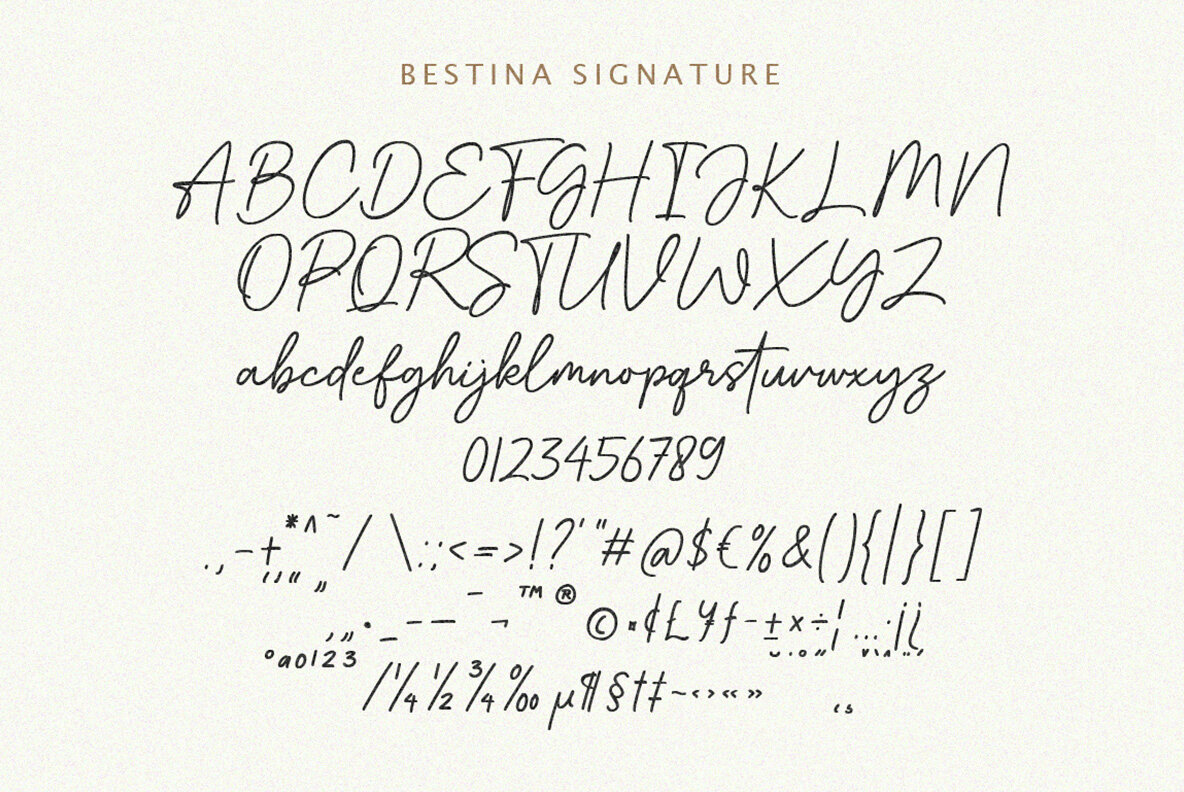 BESTINA SIGNATURE
ABCDEFGHIJKLMN
OPQRSTUVWXYZ
abcdefghijklmnopqrstuvwxyz
0123456789
* ^ ~
.,-+ / \ :;<=>!?'"#@$€%&(){|}[]
™ ®
© ¤ ¢ £ ¥ ƒ - ± × ÷ ¦ … · ¡ ¿
º a 0 1 2 3
/ ¼ ½ ¾ ‰ µ ¶ § † ‡ ~ ‹ › « »